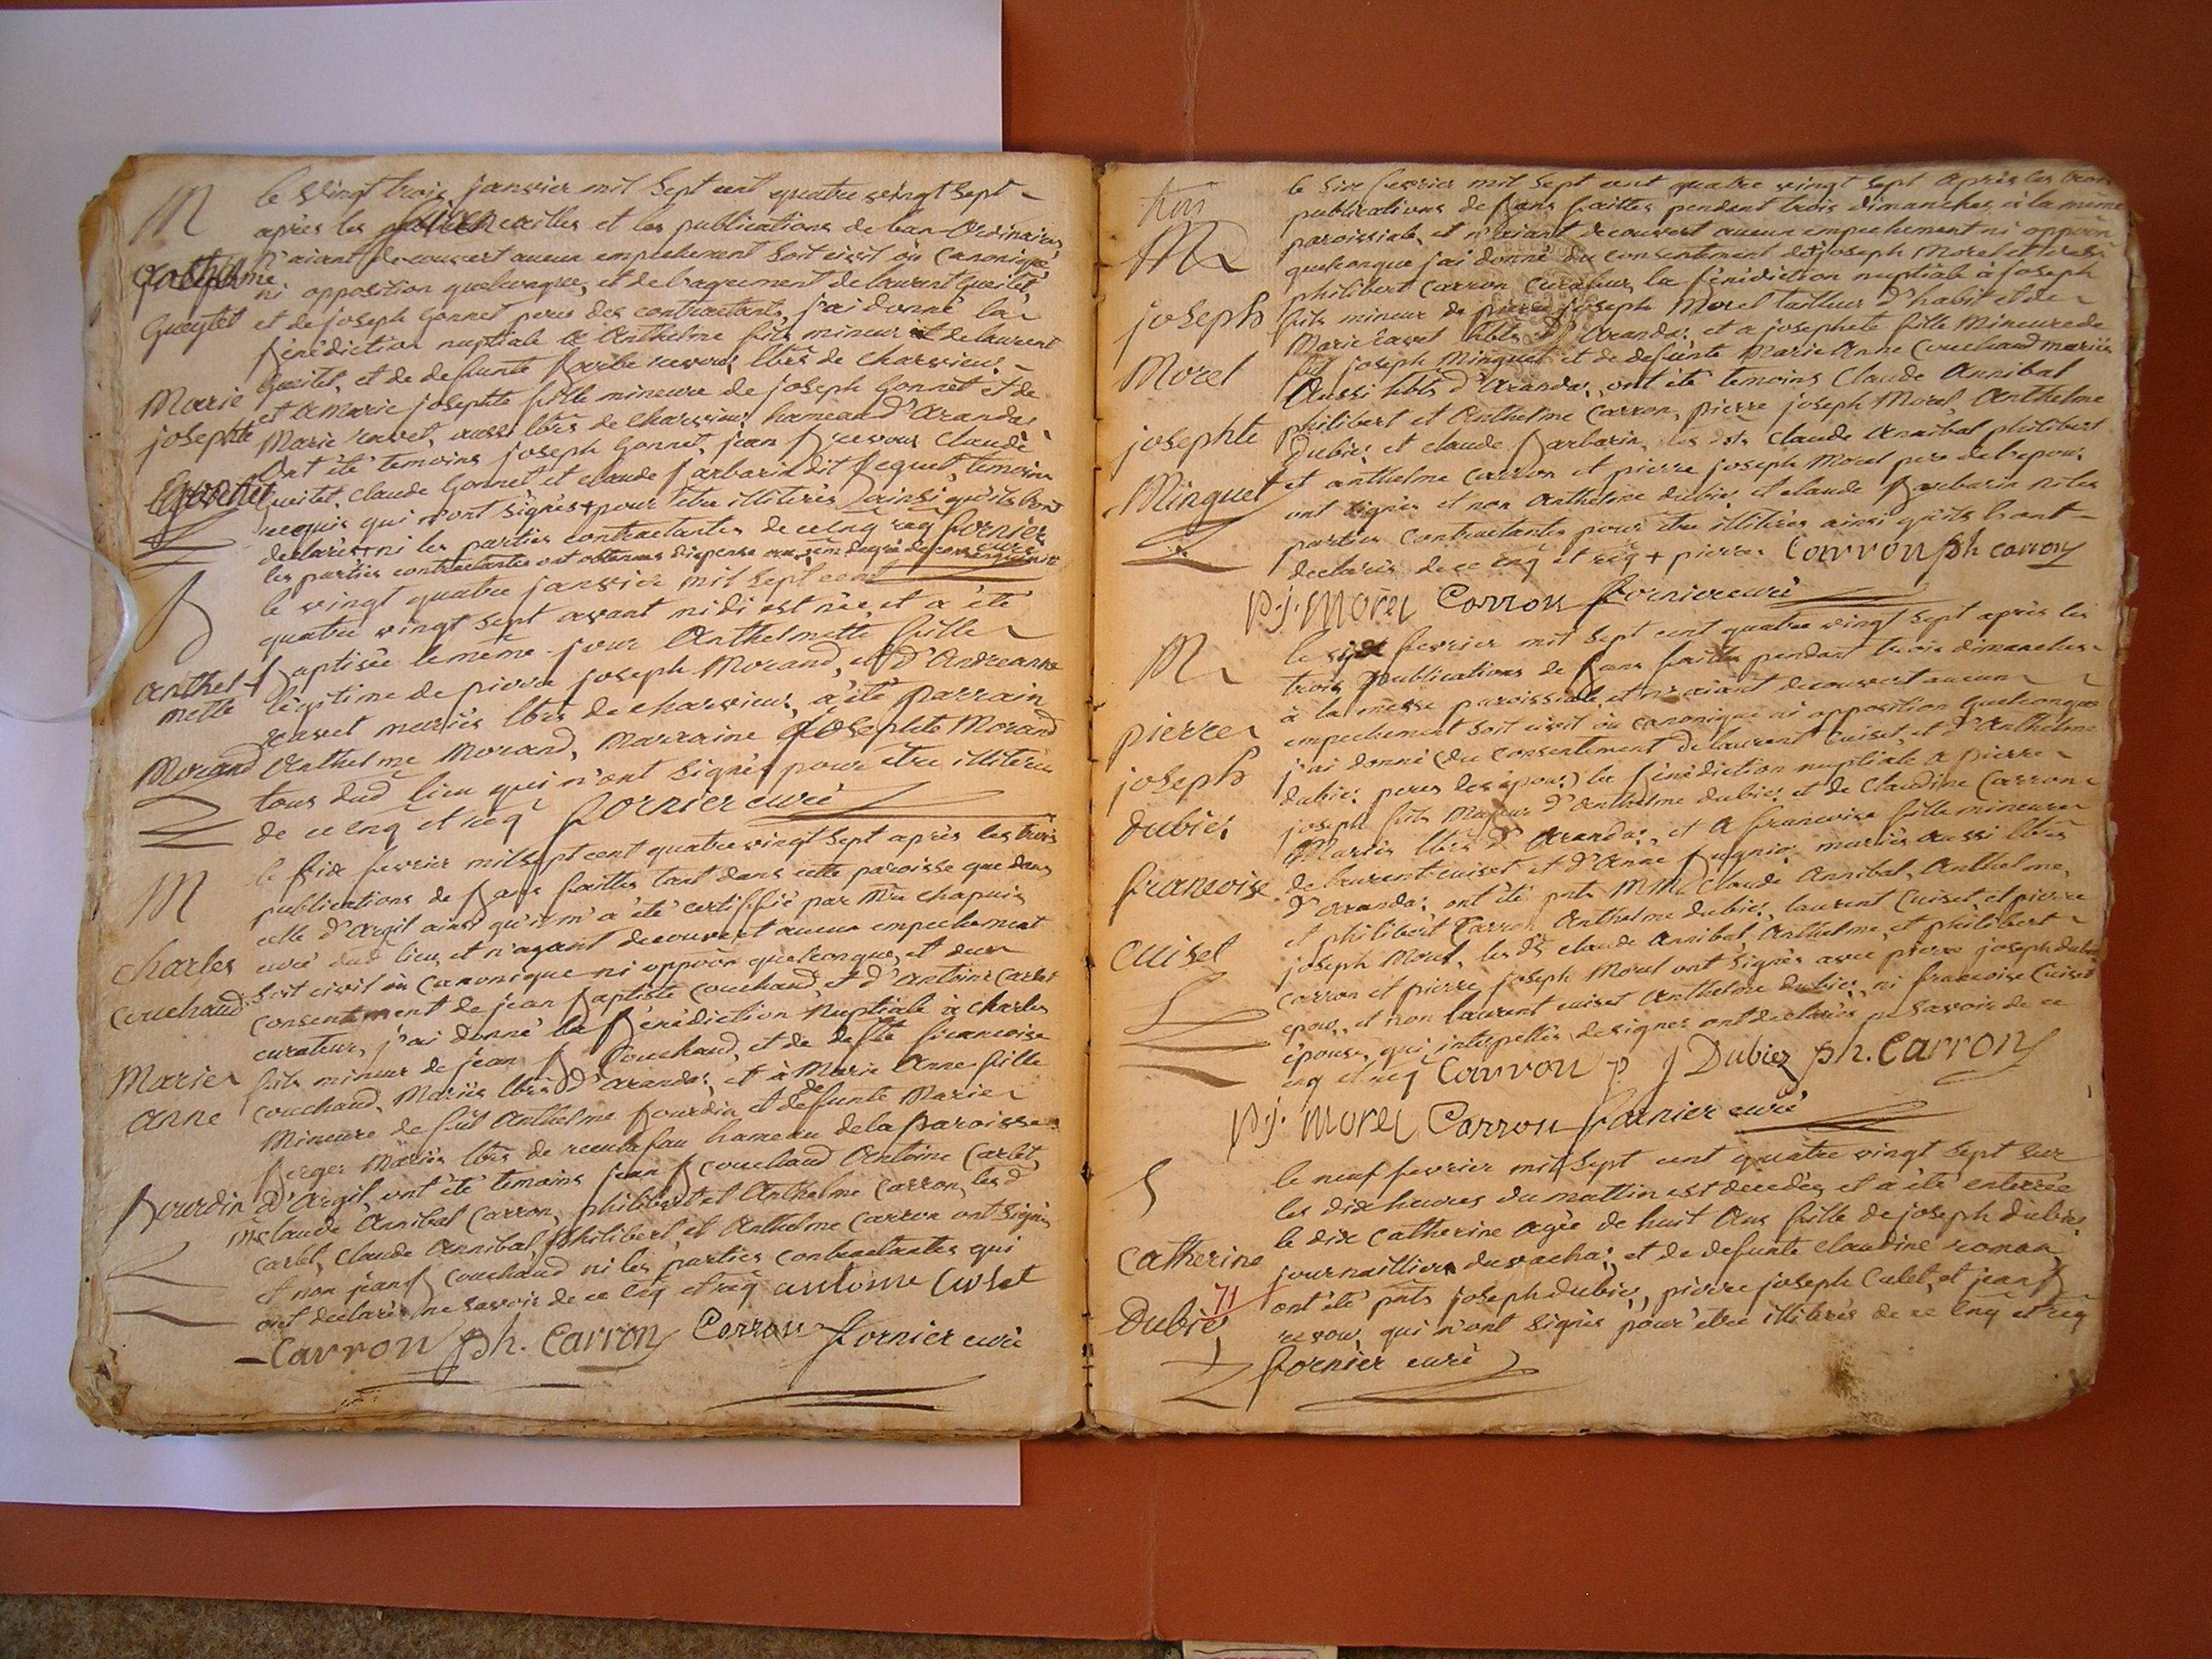 M
Anthelme
Gueytet
Marie
josephte
Gonnet
le vingt trois janvier mil sept cent quatre vingt sept
après les fiançailles et les publications de ban ordinaires
n'aiant decouvert aucun empechement soit civil ou canonique
ni opposition quelconque, et de l'agrement de laurent Gueitet,
et de joseph Gonnet peres des contractants, j'ai donné la
Bénédiction nuptiale à Anthelme fils mineur de laurent
Gueitet, et de defunte Barbe revoux hbts de charvieux
et a marie josephte fille mineure de joseph Gonnet et de
Marie ravet, aussi hbts de Charvieux hameau d'arandas
ont été temoins joseph Gonnet, jean B revoux Claude
Gueitet, Claude Gonnet et claude Barbarin dit temoins
requis qui n'ont signés pour être illiterés ainsi qu'ils l'ont
declarés, ni les parties contractantes de ce enq req fornier curé
les parties contractantes ont obtenues dispense
B
Anthel-
mette
Morand
le vingt quatre janvier mil sept cent
quatre vingt sept avant midi est née, et a été
Baptisée le même jour Anthelmette fille
légitime de pierre joseph Morand, et d'Andreanne
ravet mariés hbts de charvieux, a été parrain
Anthelme Morand, marraine josephte Morand
tous dud lieu qui n'ont signés pour être illiterés
de ce enq et req fornier curé
M
Charles
couchaud
Marie
Anne
Bourdin
le six fevrier mil sept cent quatre vingt sept après les trois
publications de Bans faittes tant dans cette paroisse que dans
celle d'argit ainsi qu'il m'a été certiffié par Mre chapuis
curé dud lieu, et n'ayant decouvert aucun empechement
soit civil ou canonique ni oppoôn quelconque, et du
consentement de jean Baptiste couchaud, et d'Antoine Carlet
curateur, j'ai donné la Bénédiction Nuptiale à Charles
fils mineur de jean B Couchaud, et de deffte francoise
couchaud, Mariés hbts d'arandas, et à Marie Anne fille
Mineure de fût Anthelme Bourdin et de defunte Marie
Berger Mariés hbts de hameau de la paroisse
d'Argit, ont été temoins jean B couchaud Antoine Carlet,
Mr claude Annibal Carron, philibert et Anthelme Carron, les d
Carlet, Claude Annibal, philibert, et Anthelme Carron ont signés
et non jean B Couchaud ni les parties contractantes qui
ont declarés ne savoir de ce enq et req antoine
Carron ph. Carron Carron fornier curé
trois
M
joseph
Morel
josephte
Minguet
le six fevrier mil sept cent quatre vingt sept après les trois
publications de Bans faittes pendant trois dimanches à la messe
paroissiale, et n'aiant decouvert aucun empechement ni oppoôn
quelconque j'ai donné du consentement de joseph Morel et de
philibert Carron Curateur, la Bénédiction nuptiale à joseph
fils mineur de pierre joseph Morel tailleur d'habit et de
Marie ravet hbts d'Arandas, et a josephte fille Mineure de
fut joseph Minguet et de defunte Marie Anne Couchaud mariés
Aussi hbts d'Arandas, ont été temoins Claude Annibal
philibert et Anthelme Carron, pierre joseph Morel, Anthelme
Dubiez et claude Barbarin, les dts Claude Annibal philibert
et anthelme Carron et pierre joseph Morel pere de l'epoux
ont signés et non Anthelme dubiez et claude Barbarin ni les
parties Contractantes pour être illiterés ainsi qu'ils l'ont
declarés de ce enq et req + pierre Carron ph carron
p.j. Morel Carron fornier curé
M
pierre
joseph
dubiez
francoise
Cuiset
le six fevrier mil sept cent quatre vingt sept après les
trois publications de Bans faittes pendant trois dimanches
à la messe paroissiale, et n'aiant decouvert aucun
empechement soit civil ou canonique ni opposition quelconque
j'ai donné (du consentement de laurent Cuiset, et d'Anthelme
dubiez peres les epoux) la Bénédiction nuptiale a pierre
joseph fils Majeur d'Anthelme dubiez et de Claudine Carron
Mariés hbts d'Arandas, et a francoise fille mineure
de laurent cuiset et d'Anne Bugnin mariés aussi hbts
d'arandas, ont été pnts MM Claude Annibal, Anthelme,
et philibert Carron, Anthelme dubiez, laurent Cuiset, et pierre
joseph Morel, les ds claude Annibal, Anthelme, et philibert
Carron et pierre joseph Morel ont signés avec pierre joseph dubiez
epoux, et non laurent cuiset Anthelme dubiez, ni francoise Cuiset
épouse, qui interpellés de signer ont declarés ne savoir de ce
enq et req Carron p j Dubiez ph. Carron
p.j. Morel Carron fornier curé
S
Catherine
Dubiez
71
le neuf fevrier mil sept cent quatre vingt sept sur
les dix heures du mattin est decedée, et a été enterrée
le dix Catherine agée de huit Ans fille de joseph dubiez
journaillier du vachat, et de defunte claudine roman
ont été pnts joseph dubiez, pierre joseph Culet, et jean B
revoux, qui n'ont signés pour être illiterés de ce enq et req
fornier curé